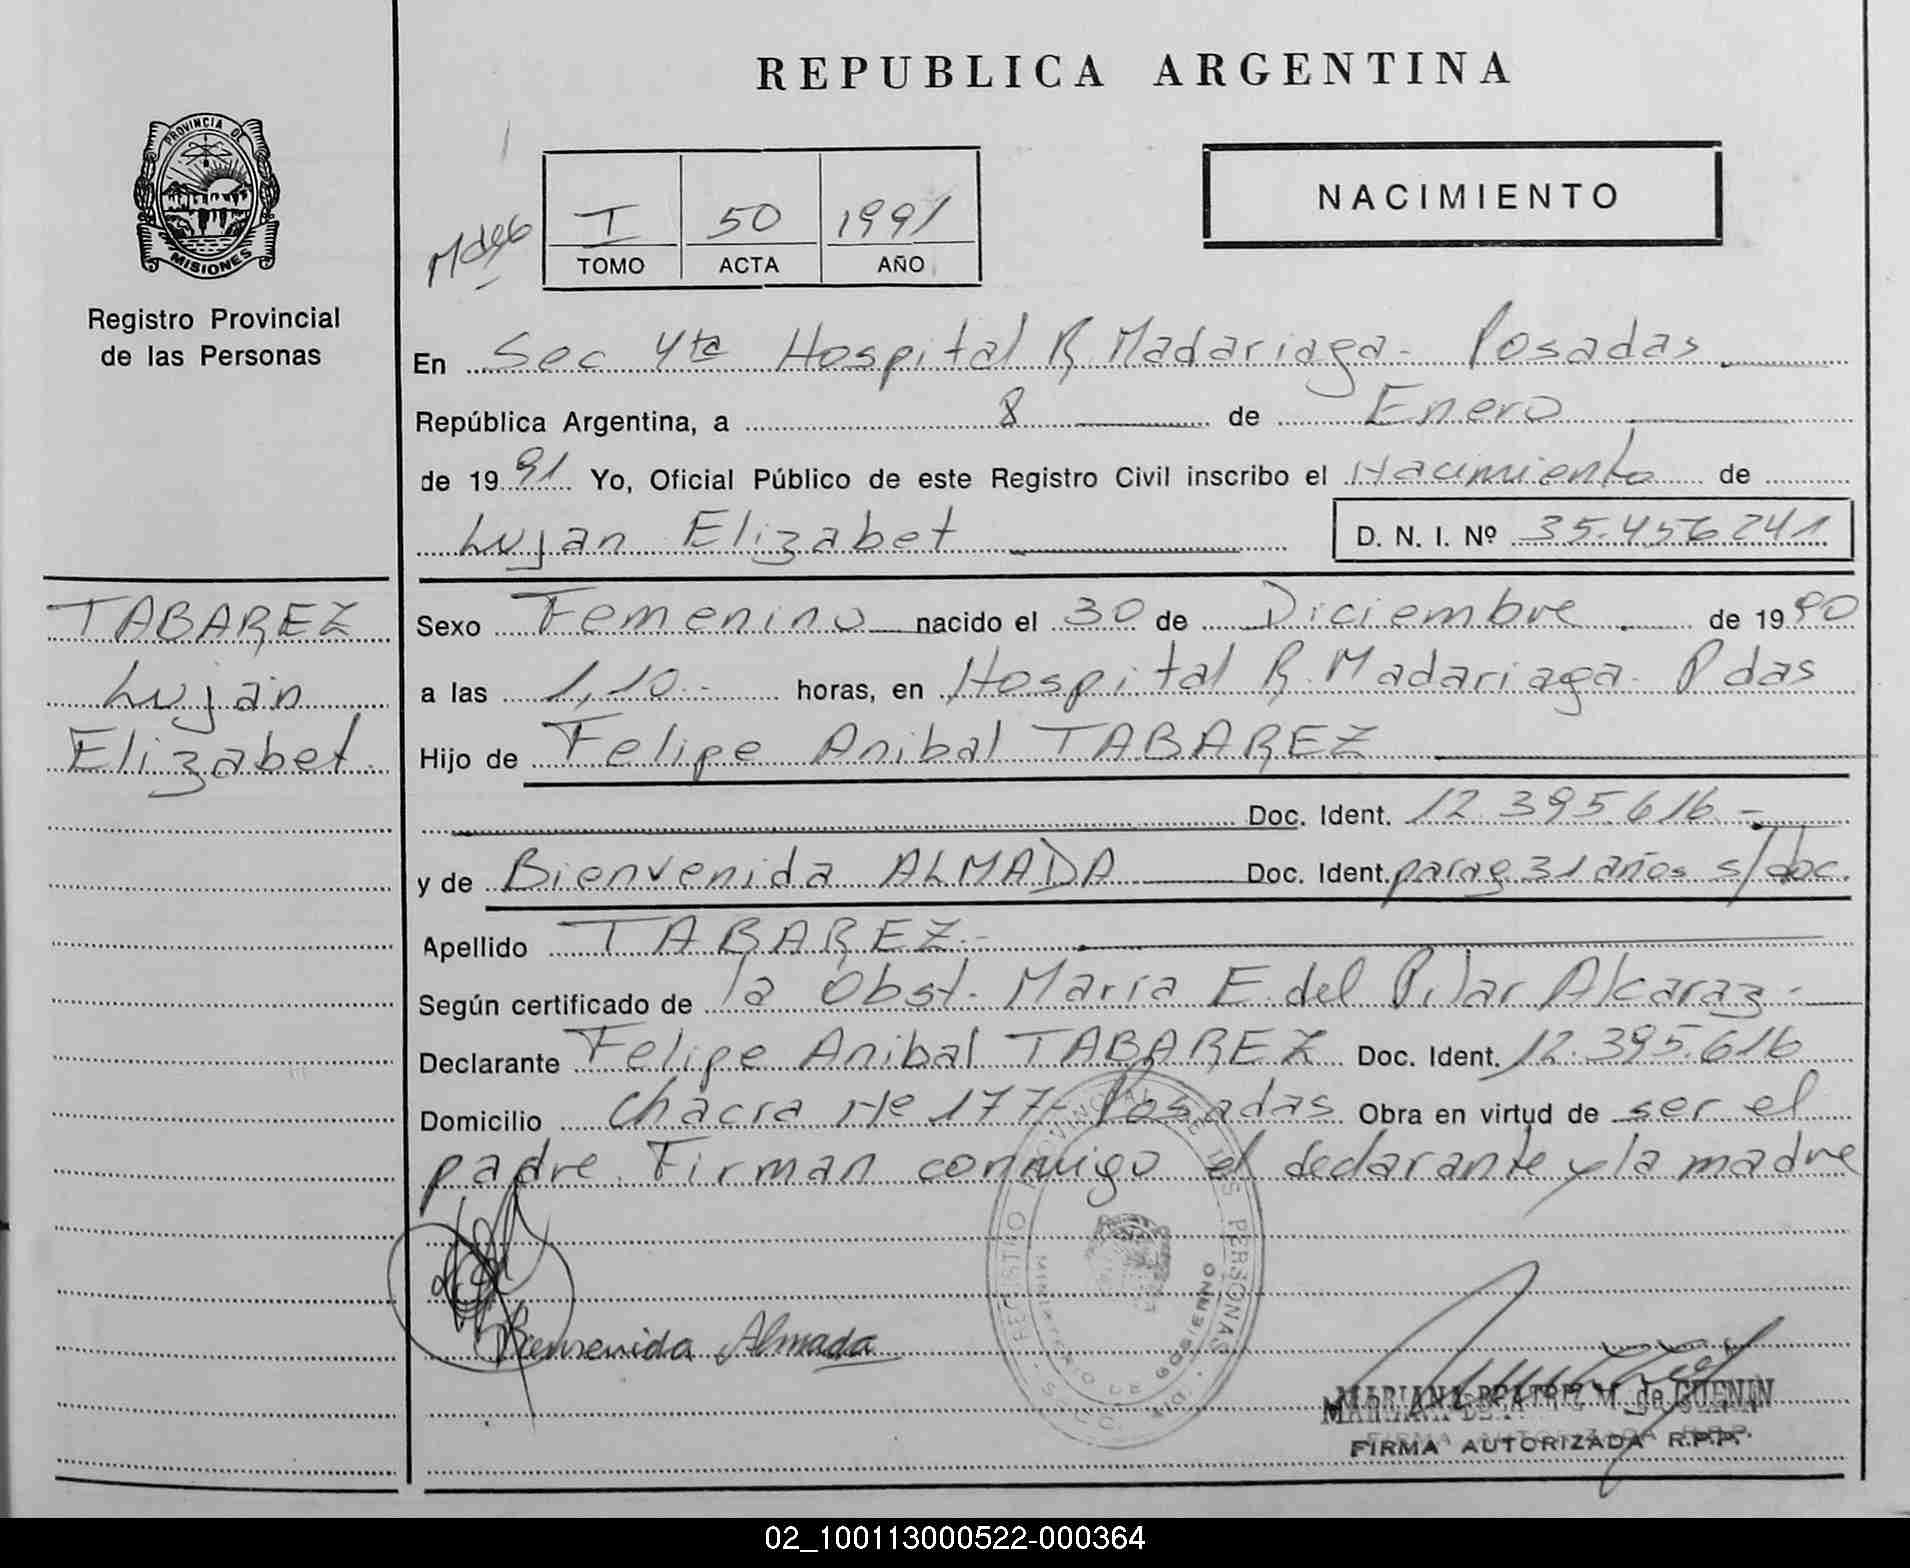 REPUBLICA ARGENTINA
PROVINCIA DE
MISIONES
Registro Provincial
de las Personas
I 50 1991
TOMO ACTA AÑO
NACIMIENTO
En Sec 4ta Hospital R. Madariaga - Posadas
República Argentina, a 8 de Enero
de 1991 Yo, Oficial Público de este Registro Civil inscribo el Nacimiento de
Lujan Elizabet D. N. I. Nº 35.456.241
TABAREZ
Lujan
Elizabet.
Sexo Femenino nacido el 30 de Diciembre de 1990
a las 1,10.- horas, en Hospital R. Madariaga. Pdas
Hijo de Felipe Anibal TABAREZ
Doc. Ident. 12.395.616.-
y de Bienvenida ALMADA Doc. Ident. parag 31 años s/doc.
Apellido TABAREZ.-
Según certificado de la Obst. María E. del Pilar Alcaraz.-
Declarante Felipe Anibal TABAREZ Doc. Ident. 12.395.616
Domicilio Chacra Nº 177- Posadas Obra en virtud de ser el
padre. Firman conmigo el declarante y la madre
REGISTRO PROVINCIAL DE LAS PERSONAS
MINISTERIO DE GOBIERNO
Bienvenida Almada
MARIANA BEATRIZ M. de GUENIN
FIRMA AUTORIZADA R.P.P.
02_100113000522-000364